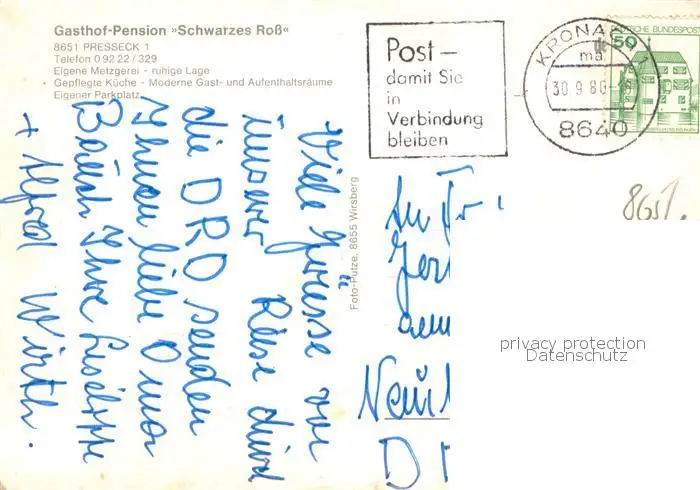 Gasthof-Pension »Schwarzes Roß«
8651 PRESSECK 1
Telefon 0 92 22 / 329
Eigene Metzgerei - ruhige Lage
Gepflegte Küche - Moderne Gast- und Aufenthaltsräume
Eigener Parkplatz
Post –
damit Sie
in
Verbindung
bleiben
KRONACH
ma
30.9.80
8640
50
DEUTSCHE BUNDESPOST
8651.
Viele Grüsse von
unserer Reise durch
die DRD senden
Ihnen liebe Oma
Bauch Ihre Liselotte
+ Alfred Wirth.
Foto-Putze, 8655 Wirsberg
An Fr
D
privacy protection
Datenschutz